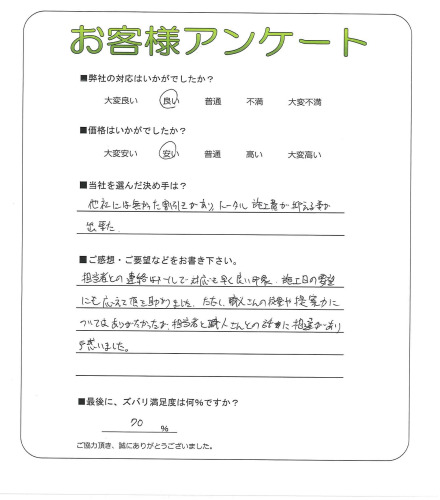 お客様アンケート
■弊社の対応はいかがでしたか？
大変良い 良い 普通 不満 大変不満
■価格はいかがでしたか？
大変安い 安い 普通 高い 大変高い
■当社を選んだ決め手は？
他社には無かった割引きがあり、トータル施工費が抑える事が
出来た
■ご感想・ご要望などをお書き下さい。
担当者との連絡はメールで対応も早く良い印象。施工日の要望
にも応えて頂き助かりました。ただし、職人さんの
については、ありがたかったが、担当者と職人さんとの話に相違があり
戸惑いました。
■最後に、ズバリ満足度は何％ですか？
70 ％
ご協力頂き、誠にありがとうございました。